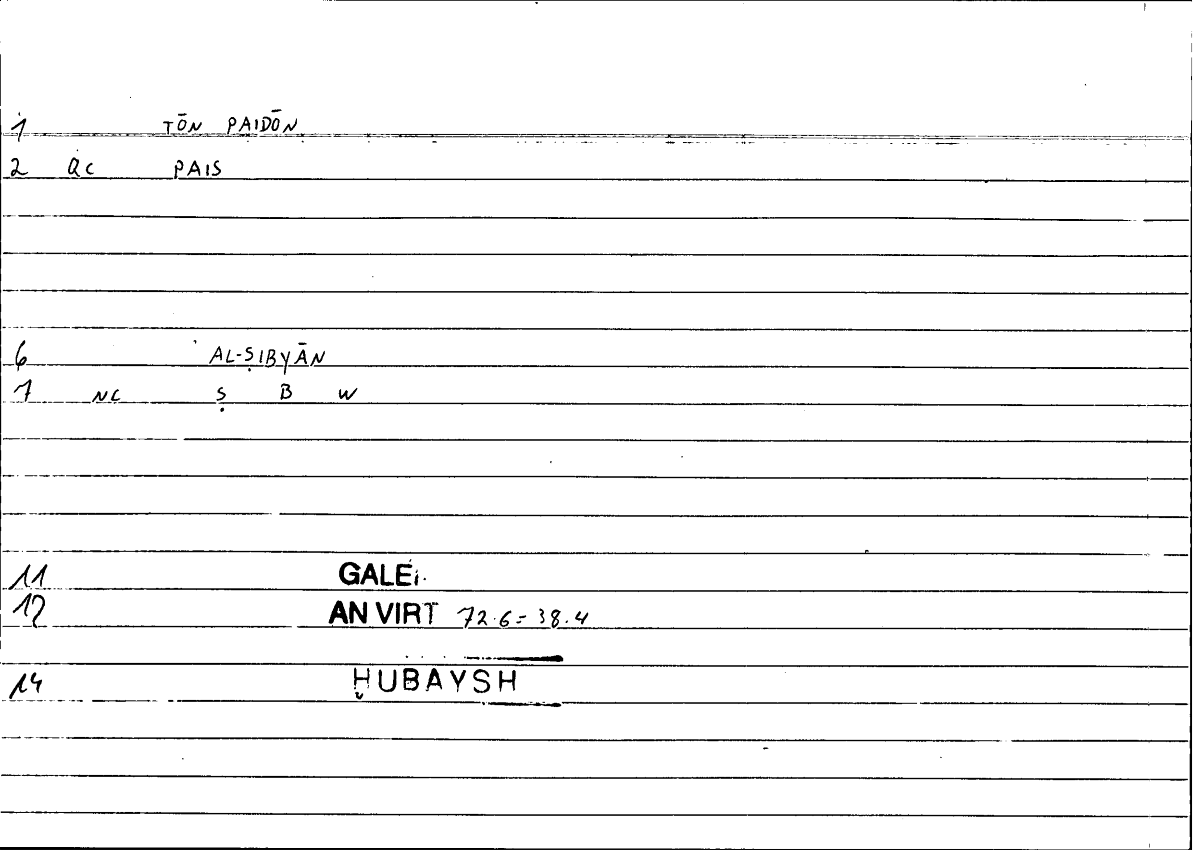 1 TŌN PAIDŌN
2 QC PAIS
6 AL-ṢIBYĀN
7 NC Ṣ B W
11 GALE
12 AN VIRT 72.6=38.4
14 ḤUBAYSH